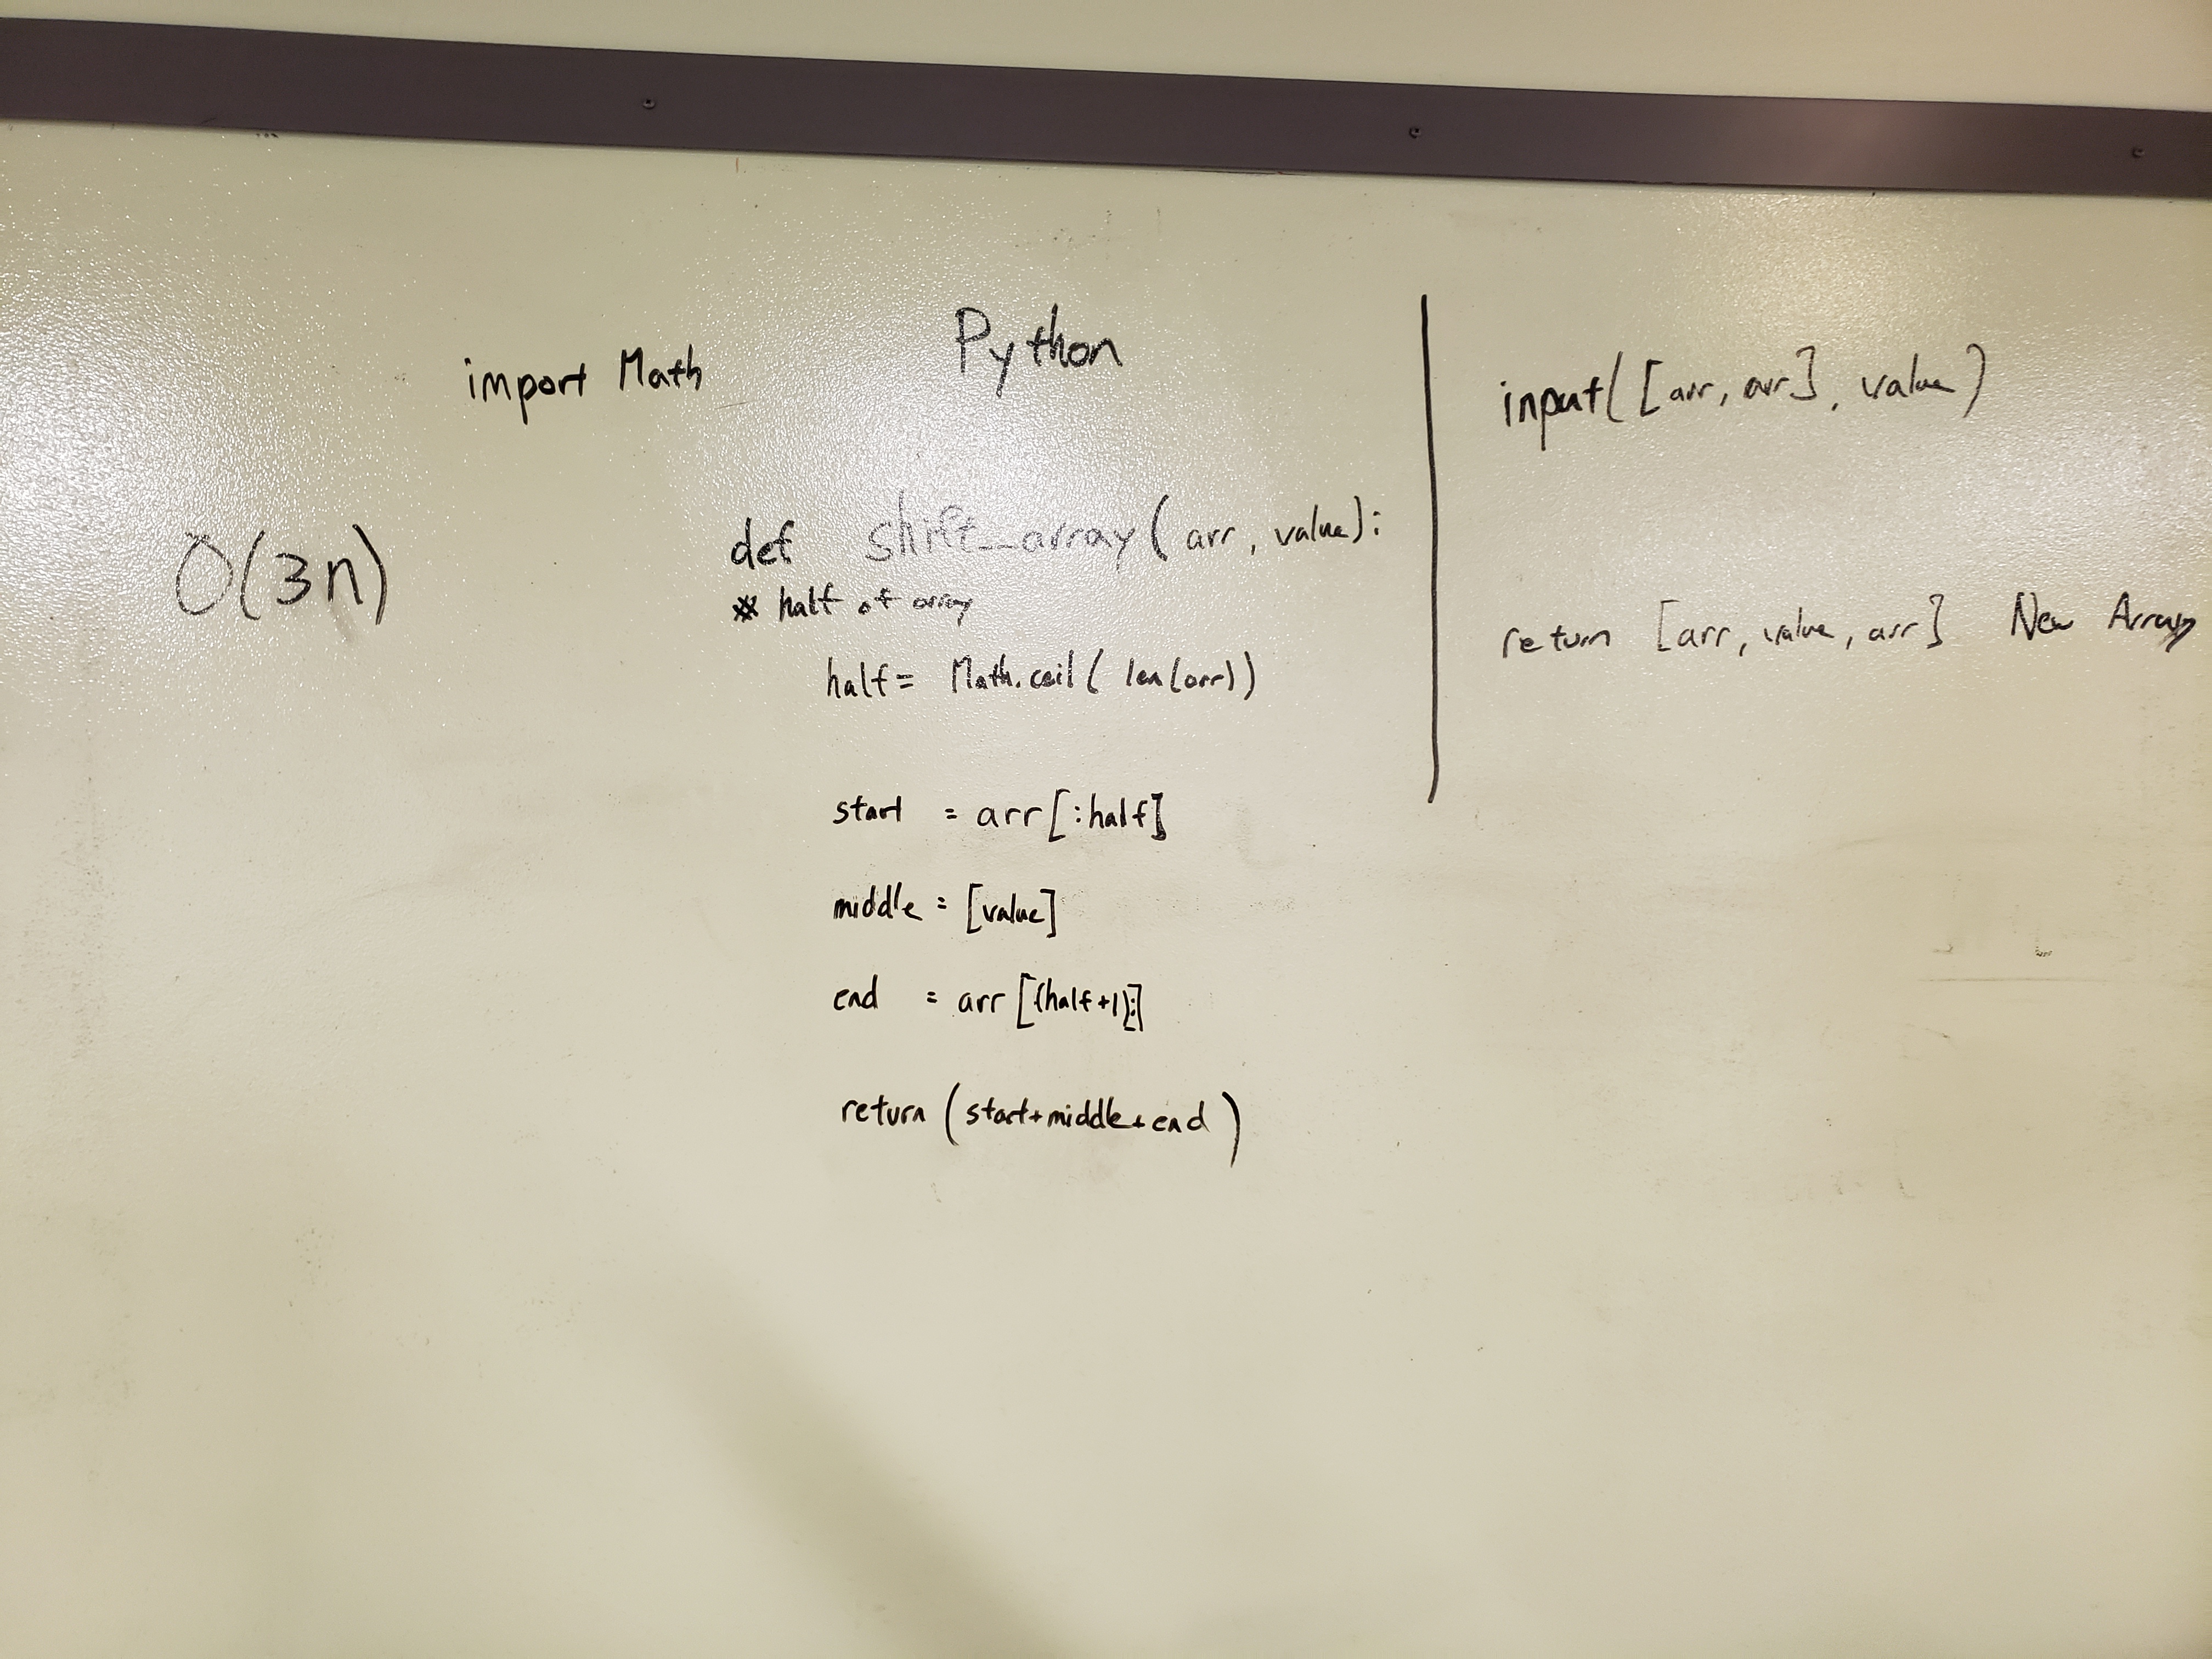 Python
import Math
O(3n)
def shift_array(arr, value):
# half of array
half = Math.ceil( len(arr))
start = arr[:half]
middle = [value]
end = arr[(half+1):]
return (start+middle+end)
input([arr, arr], value)
return [arr, value, arr] New Array